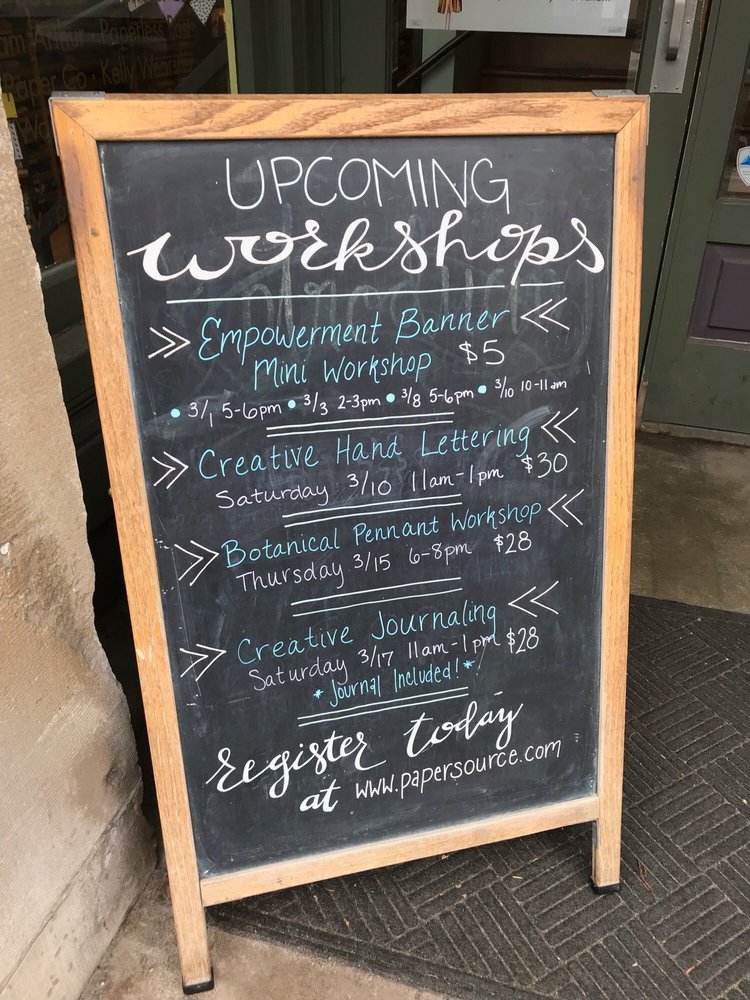 om Arthur · Paperless Post
Paper Co · Kelly Wearstler
UPCOMING
workshops
Empowerment Banner
Mini Workshop $5
• 3/1 5-6pm • 3/3 2-3pm • 3/8 5-6pm • 3/10 10-11am
Creative Hand Lettering
Saturday 3/10 11am-1pm $30
Botanical Pennant Workshop
Thursday 3/15 6-8pm $28
Creative Journaling
Saturday 3/17 11am-1pm $28
*Journal Included!*
register today
at www.papersource.com